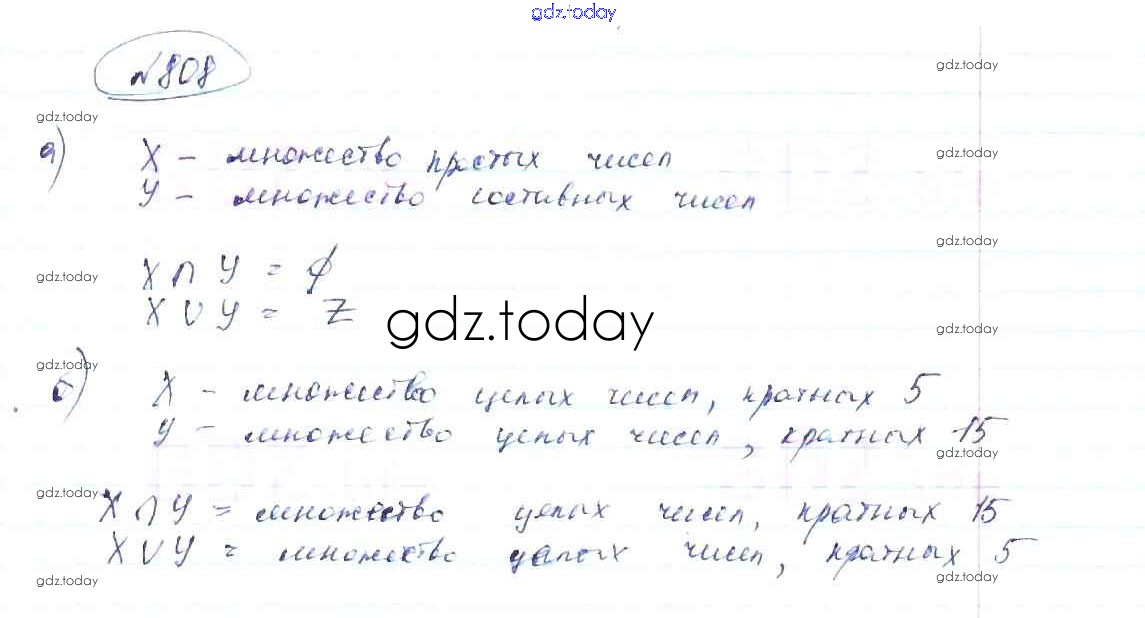 gdz.today
№808
gdz.today
gdz.today
а) X - множество простых чисел
gdz.today
Y - множество составных чисел
gdz.today
X ∩ Y = ∅
gdz.today
X ∪ Y = Z
gdz.today
gdz.today
gdz.today
б) X - множество целых чисел, кратных 5
Y - множество целых чисел, кратных 15
gdz.today
gdz.today
X ∩ Y = множество целых чисел, кратных 15
X ∪ Y = множество целых чисел, кратных 5
gdz.today
gdz.today